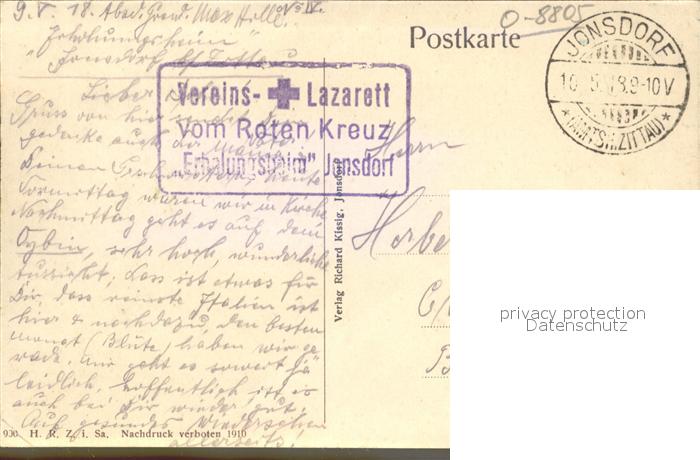 9.V.18. Absd. Gren. Max Hille
O-8805
"Erholungsheim"
Jonsdorf
Postkarte
JONSDORF
10.5.18.9-10V
*(AMTSH.ZITTAU)*
Vereins- Lazarett
vom Roten Kreuz
"Erholungsheim" Jonsdorf
Lieber
Gruss von hier sendet
gedenke auch der
Deinen heute
Vormittag waren wir in Kirche
Nachmittag geht es auf dem
Oybin, sehr hoch, wunderliche
Aussicht, das ist etwas für
Dir, das reinste Italien ist
hier & noch dazu, den besten
Monat (Blüte) haben wir ge
rade. Mir geht es soweit ja
leidlich, hoffentlich ist es
auch bei Dir wieder gut.
Auf gesundes Wiedersehen
allerseits!
Herrn
Verlag Richard Kissig, Jonsdorf
privacy protection
Datenschutz
900 H. R. Z. i. Sa. Nachdruck verboten 1910